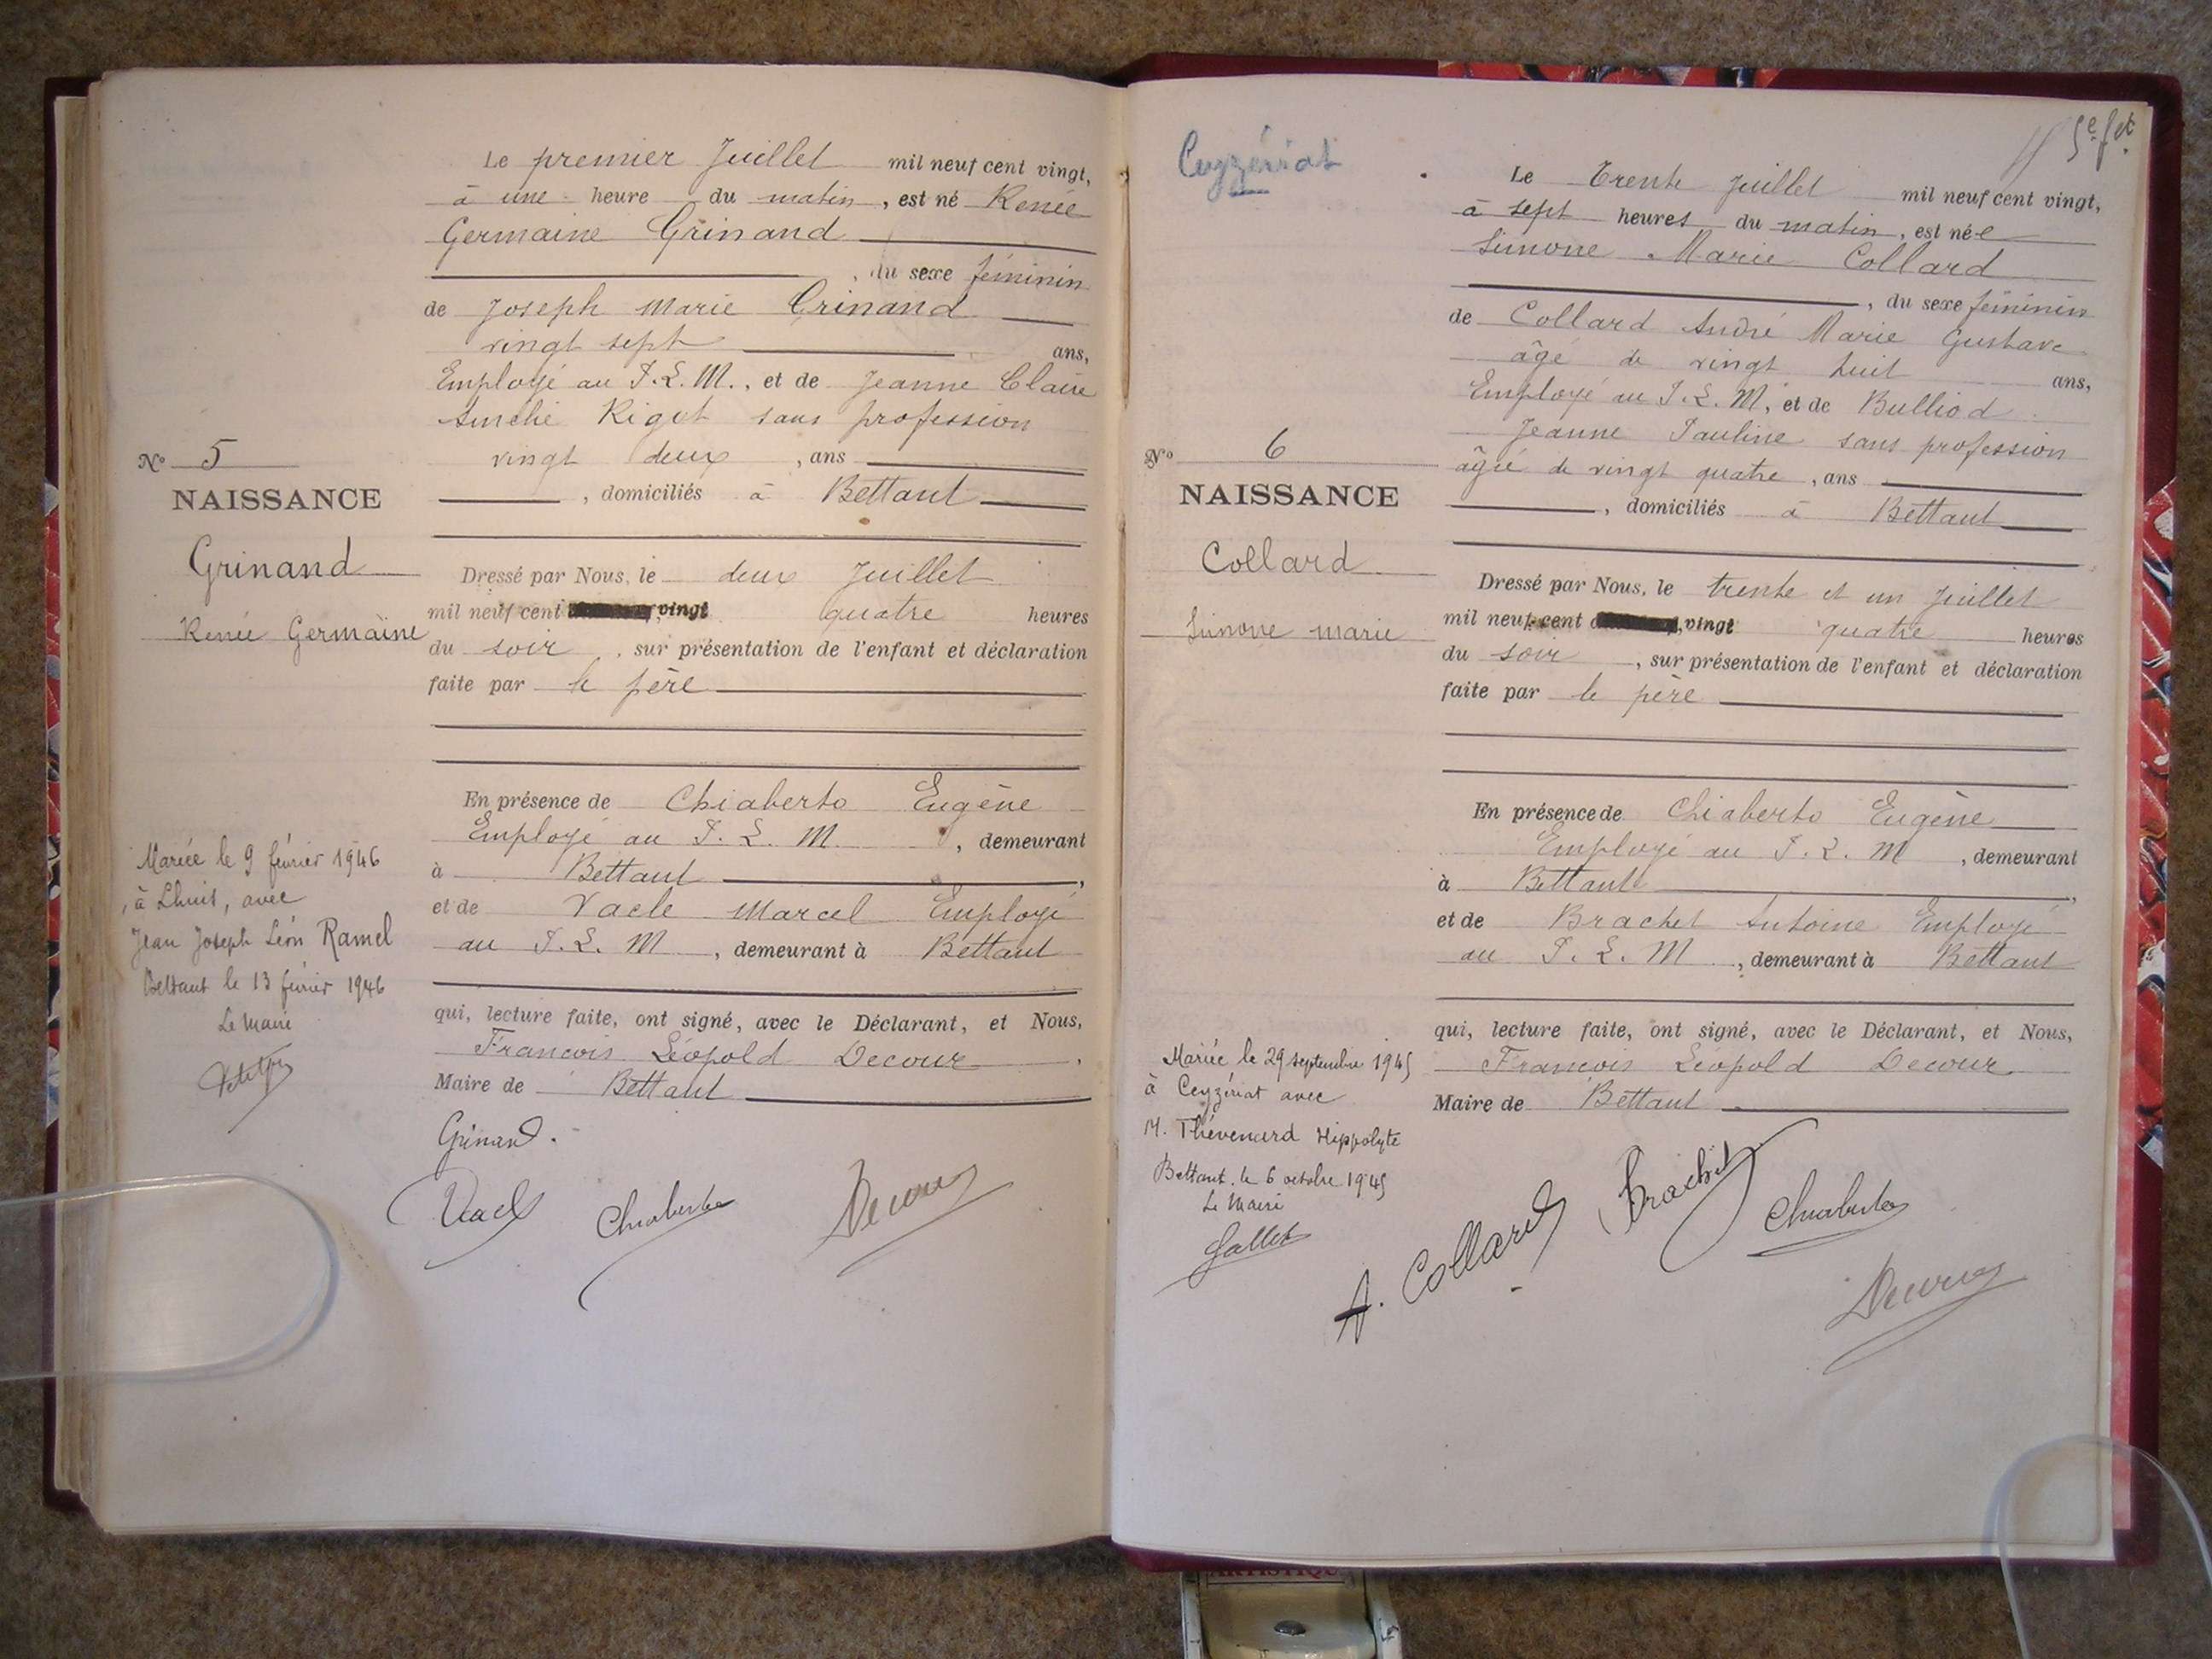 Le premier Juillet mil neuf cent vingt,
à une heure du matin, est né Renée
Germaine Grinand
, du sexe féminin
de Joseph Marie Grinand
vingt sept ans,
Employé au P.L.M., et de Jeanne Claire
Amélie Rigot sans profession
vingt deux, ans
, domiciliés à Bettant
No 5
NAISSANCE
Grinand
Renée Germaine
Dressé par Nous, le deux Juillet
mil neuf cent vingt quatre heures
du soir, sur présentation de l'enfant et déclaration
faite par le père
En présence de Chiaberto Eugène
Employé au P.L.M, demeurant
à Bettant,
et de Vacle Marcel Employé
au P.L.M, demeurant à Bettant
qui, lecture faite, ont signé, avec le Déclarant, et Nous,
François Léopold Decour,
Maire de Bettant
Mariée le 9 février 1946
, à Lhuis, avec
Jean Joseph Léon Ramel
Bettant le 13 février 1946
Le Maire
Grinand.
Vacle Chiaberto Decour
5e fet
Ceyzériat
Le Trente Juillet mil neuf cent vingt,
à sept heures du matin, est née
Simone Marie Collard
, du sexe féminin
de Collard André Marie Gustave
âgé de vingt huit ans,
Employé au P.L.M, et de Bulliod
Jeanne Pauline sans profession
âgée de vingt quatre, ans
, domiciliés à Bettant
No 6
NAISSANCE
Collard
Simone Marie
Dressé par Nous, le trente et un Juillet
mil neuf cent vingt quatre heures
du soir, sur présentation de l'enfant et déclaration
faite par le père
En présence de Chiaberto Eugène
Employé au P.L.M, demeurant
à Bettant,
et de Brachet Antoine Employé
au P.L.M, demeurant à Bettant
qui, lecture faite, ont signé, avec le Déclarant, et Nous,
François Léopold Decour
Maire de Bettant
Mariée le 29 septembre 1945
à Ceyzériat avec
M. Thévenard Hippolyte
Bettant, le 6 octobre 1945
Le Maire
Gallet
A. Collard Brachet Chiaberto
Decour